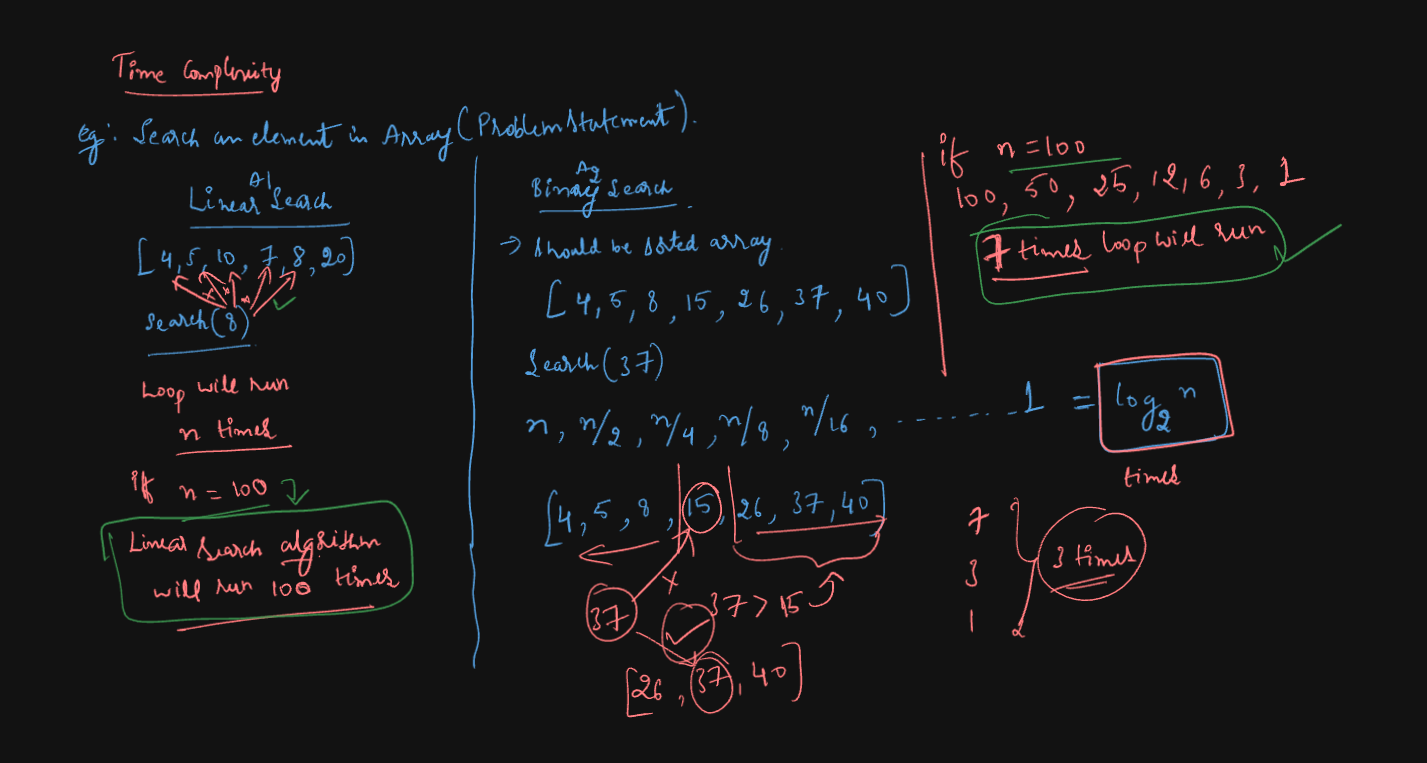 Time Complexity
Eg: Search an element in Array (Problem Statement).
A1
Linear Search
[4, 5, 10, 7, 8, 20]
Search(8)
Loop will run
n times
if n = 100
Linear Search algorithm
will run 100 times
A2
Binary Search
→ Should be sorted array.
[4, 5, 8, 15, 26, 37, 40]
Search(37)
n, n/2, n/4, n/8, n/16, ....... 1 = log₂ n
times
[4, 5, 8, 15, 26, 37, 40]
37 x 37 > 15
[26, 37, 40]
if n = 100
100, 50, 25, 12, 6, 3, 1
7 times loop will run
7
3
1
3 times